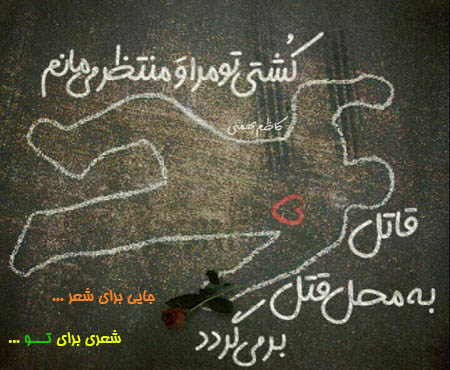 کُشتی تو مرا وَ منتظر می مانم
کاظم بهمنی
قاتل
به محل قتل
بر می گردد
جایی برای شعر ...
شعری برای تـــو ...